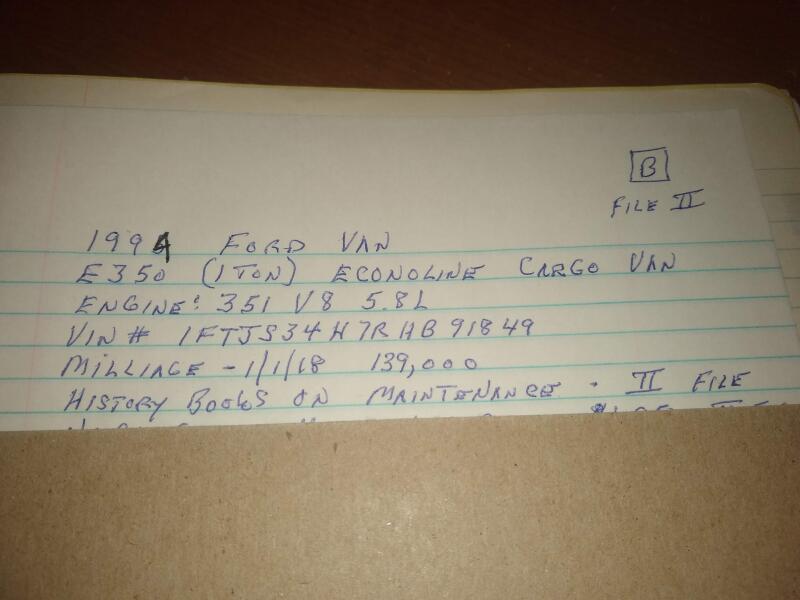 B
FILE II
1994 FORD VAN
E350 (1 TON) ECONOLINE CARGO VAN
ENGINE: 351 V8 5.8L
VIN # 1FTJS34H7RHB91849
MILLIAGE - 1/1/18 139,000
HISTORY BOOKS ON MAINTENANCE. II FILE